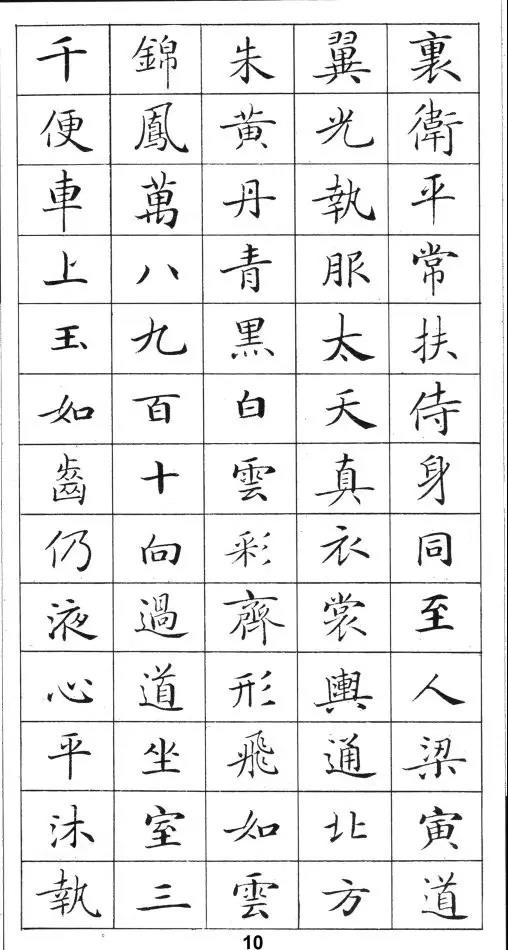 裏衛平常扶侍身同至人梁寅道
翼光執服太天真衣裳輿通北方
朱黄丹青黑白雲彩齊形飛如雲
錦鳳萬八九百十向過道坐室三
千便車上玉如齒仍液心平沐執
10